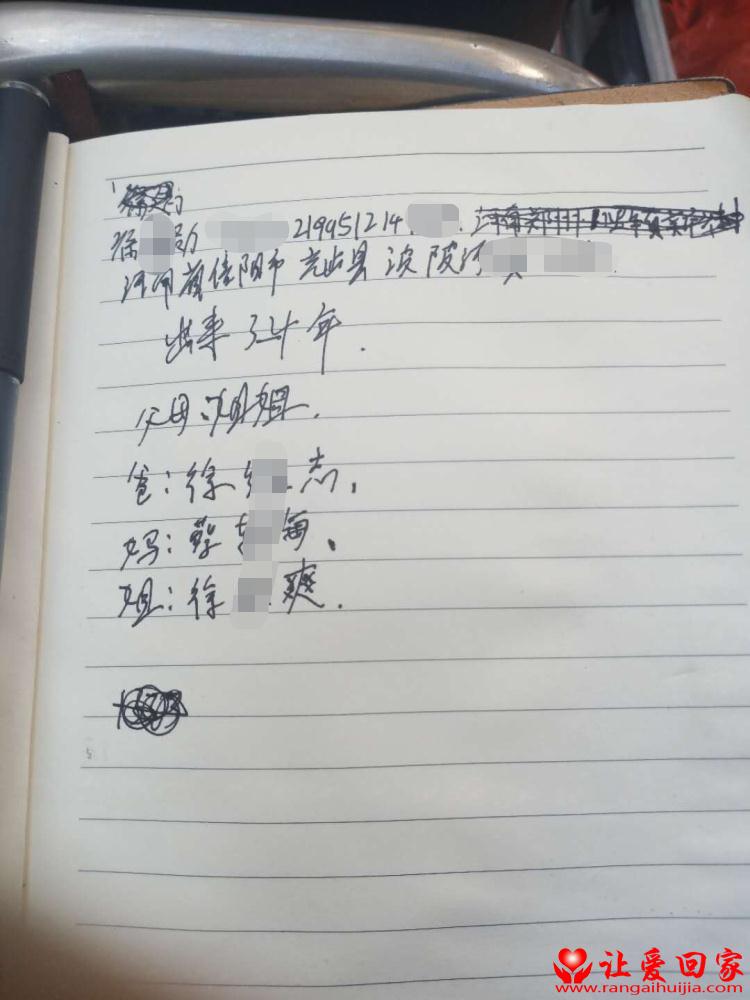 徐 勋 219951214
河南省信阳市光山县泼陂河
出来3、4年.
父母、姐姐.
爸:徐 志.
妈:蔡 梅、
姐:徐 爽.
让爱回家
www.rangaihuijia.com